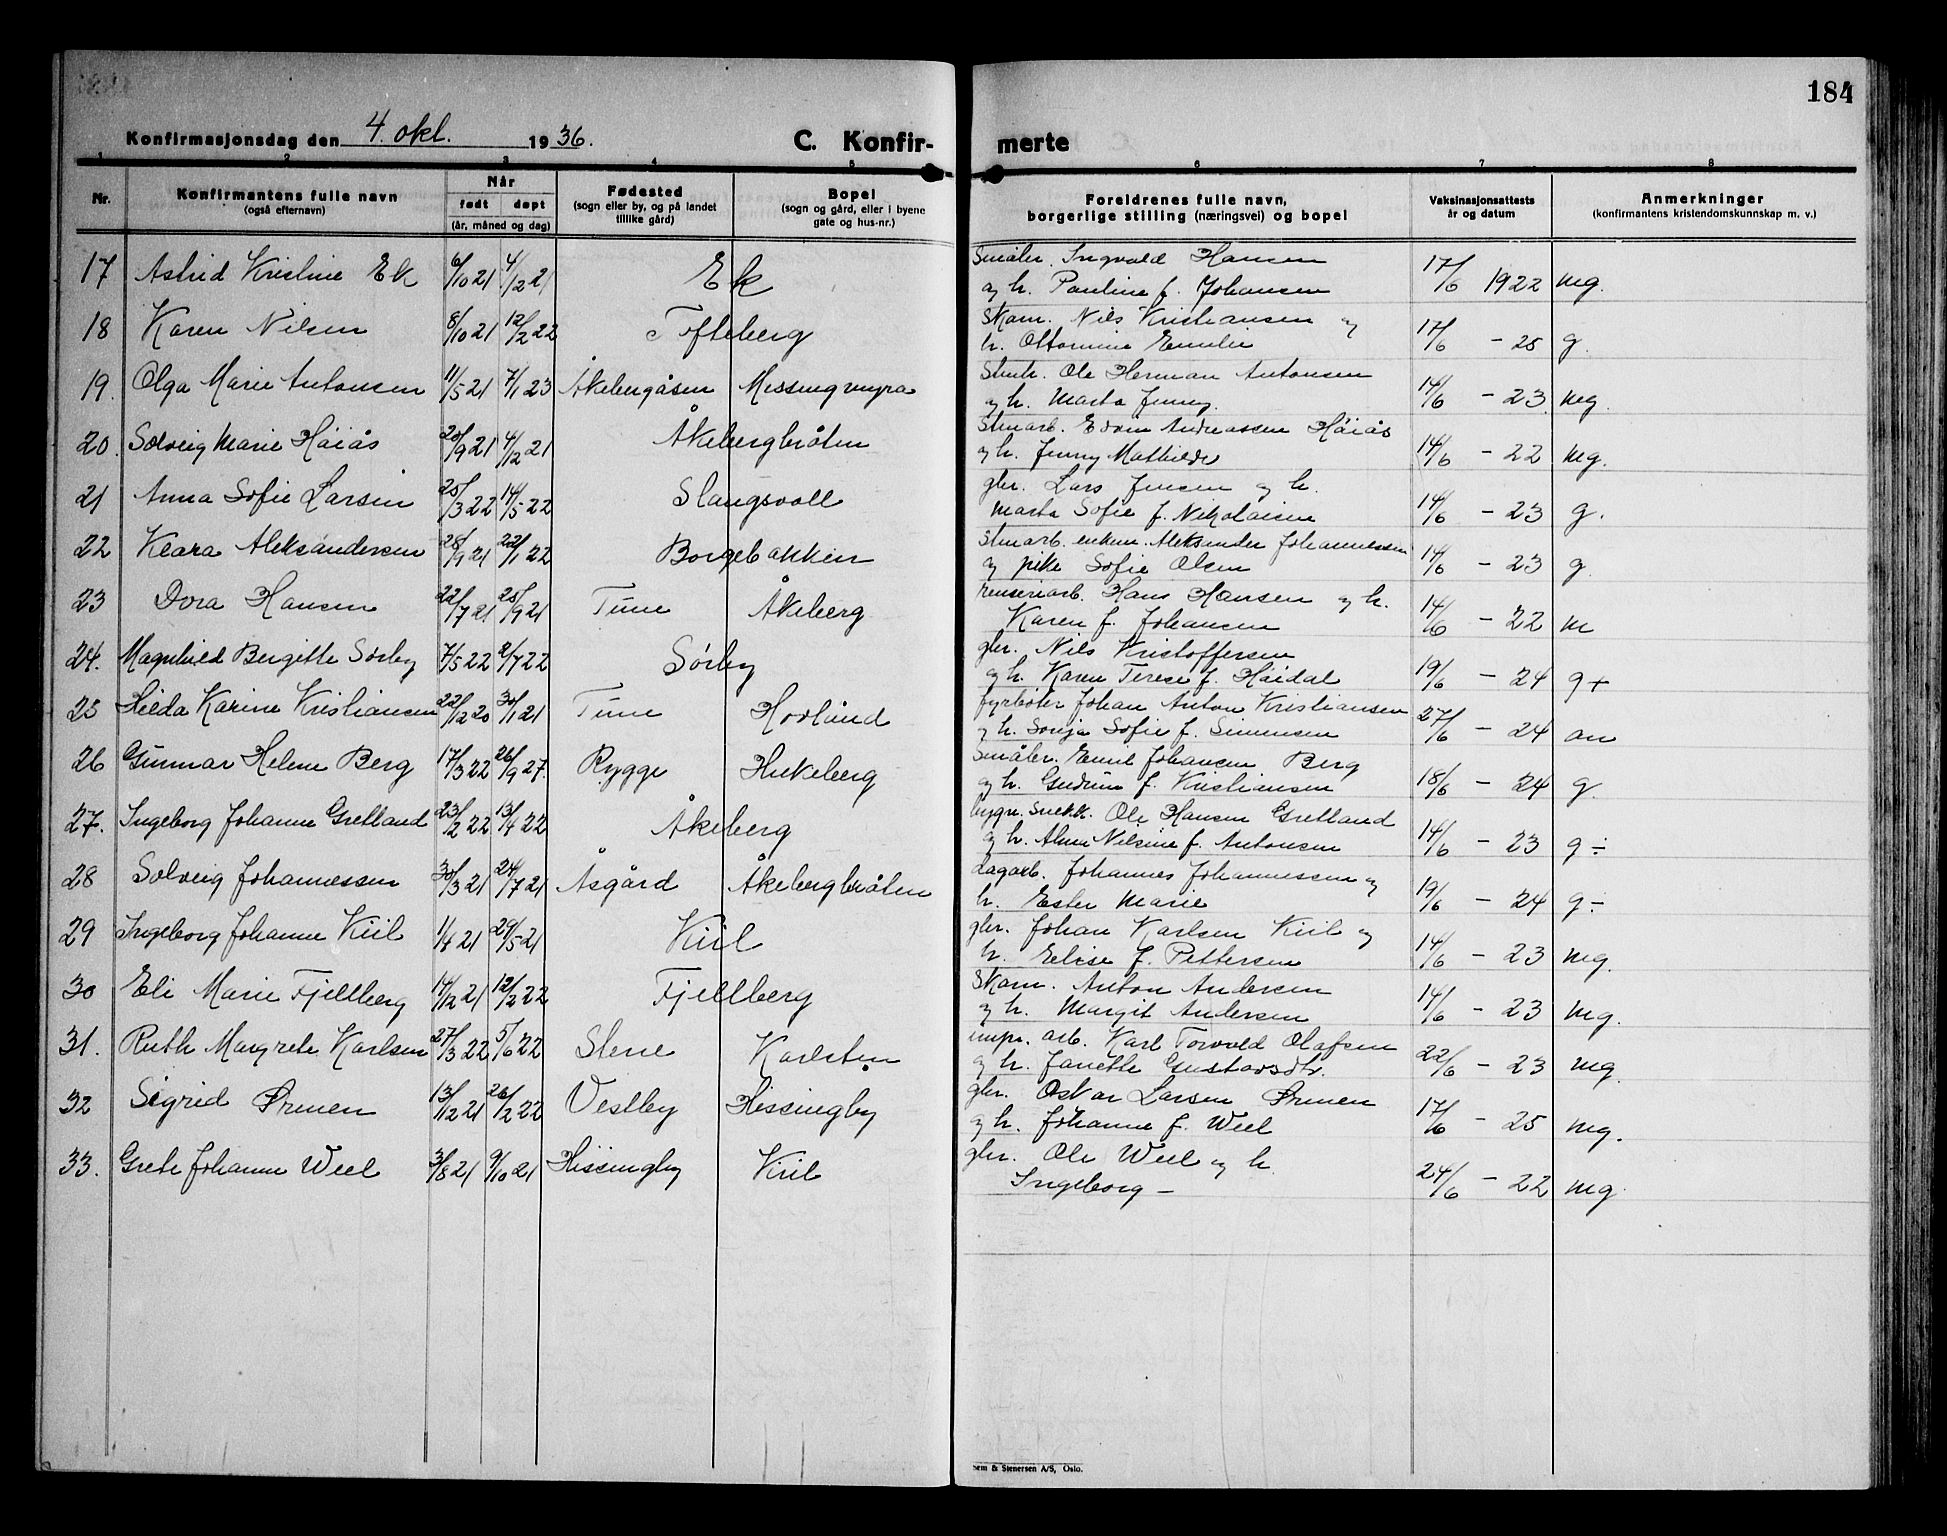 184
Konfirmasjonsdag den 4. okt. 1936.
C. Konfir-
merte
1 2 3 4 5 6 7 8
Nr.
Konfirmantens fulle navn
(også efternavn)
Når
født
døpt
(år, måned og dag)
Fødested
(sogn eller by, og på landet
tillike gård)
Bopel
(sogn og gård, eller i byene
gate og hus-nr.)
Foreldrenes fulle navn,
borgerlige stilling (næringsvei) og bopel
Vaksinasjonsattests
år og datum
Anmerkninger
(konfirmantens kristendomskunnskap m. v.)
17 Astrid Kristine Ek 6/10 21 4/12 21 Ek Småbr. Ingvald Hansen
og h. Pauline f. Johansen 17/6 1922 mg.
18 Karen Nilsen 8/10 21 12/2 22 Tofteberg Skom. Nils Kristiansen og
h. Ottomine Emilie 17/6 - 25 g.
19. Olga Marie Antonsen 11/5 21 7/1 23 Åkebergåsen Messingmyra Ole Herman Antonsen
og h. Marta Jenny. 14/6 - 23 mg.
20. Solveig Marie Høiås 20/9 21 4/12 21 Åkebergbråten Stenarb. Edvin Andreassen Høiås
og h. Jenny Mathilde 14/6 - 22 mg.
21 Anna Sofie Larsen 25/3 22 14/5 22 Slangsvoll gbr. Lars Jensen og h.
Marta Sofie f. Nikolaisen 14/6 - 23 g.
22 Klara Aleksandersen 28/9 21 22/1 22 Borgebakken Stenarb. enkem. Aleksander Johannessen
og pike Sofie Olsen 14/6 - 23 g.
23 Dora Hansen 22/7 21 25/9 21 Tune Åkeberg renseriarb. Hans Hansen og h.
Karen f. Johansen 14/6 - 22 m
24. Magnhild Bergitte Sørby 7/5 22 2/7 22 Sørby gbr. Nils Kristoffersen
og h. Karen Terese f. Høidal 19/6 - 24 g+
25 Hilda Karine Kristiansen 22/12 20 30/1 21 Tune Hovland fyrbøter Johan Anton Kristiansen
og h. Sonja Sofie f. Simensen 27/6 - 24 an
26 Gunnar Helene Berg 17/3 22 26/9 27. Rygge Huggeberg Småbr. Emil Johansen Berg
og h. Gudrun f. Kristiansen 18/6 - 24 g.
27. Ingeborg Johanne Gretland 23/2 22 13/4 22 Åkeberg bygn. snekk. Ole Hansen Gretland
og h. Alma Nilsine f. Antonsen 14/6 - 23 g÷
28 Solveig Johannessen 30/3 21 24/7 21 Åsgård Åkebergbråten dagarb. Johannes Johannessen og
h. Ester Marie 19/6 - 24 g÷
29 Ingeborg Johanne Kiil 1/4 21 29/5 21 Kiil gbr. Johan Karlsen Kiil og
h. Elise f. Pettersen 14/6 - 23 mg.
30 Eli Marie Fjellberg 14/12 21 12/2 22 Fjellberg Skom. Anton Andersen
og h. Margit Andersen 14/6 - 23 mg.
31. Ruth Margrete Karlsen 27/3 22 5/6 22 Stene Karlsten impr. arb. Karl Torvald Olafsen
og h. Janette Gustavsdtr. 22/6 - 23 mg.
32 Sigrid Ørmen 13/12 21 26/2 22 Vestby Hissingby gbr. Oskar Larsen Ørmen
og h. Johanne f. Weel 17/6 - 25 mg.
33. Grete Johanne Weel 3/8 21 9/10 21 Hissingby Kiil gbr. Ole Weel og h.
Ingeborg - 24/6 - 22 mg.
Sem & Stenersen A/S, Oslo.